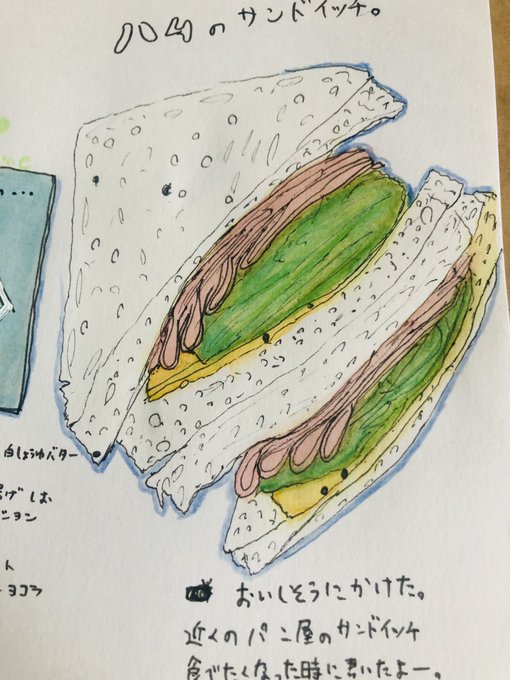 ハムのサンドイッチ。
白しょうゆバター
おいしそうにかけた。
近くのパン屋のサンドイッチ
食べたくなった時に書いたよー。